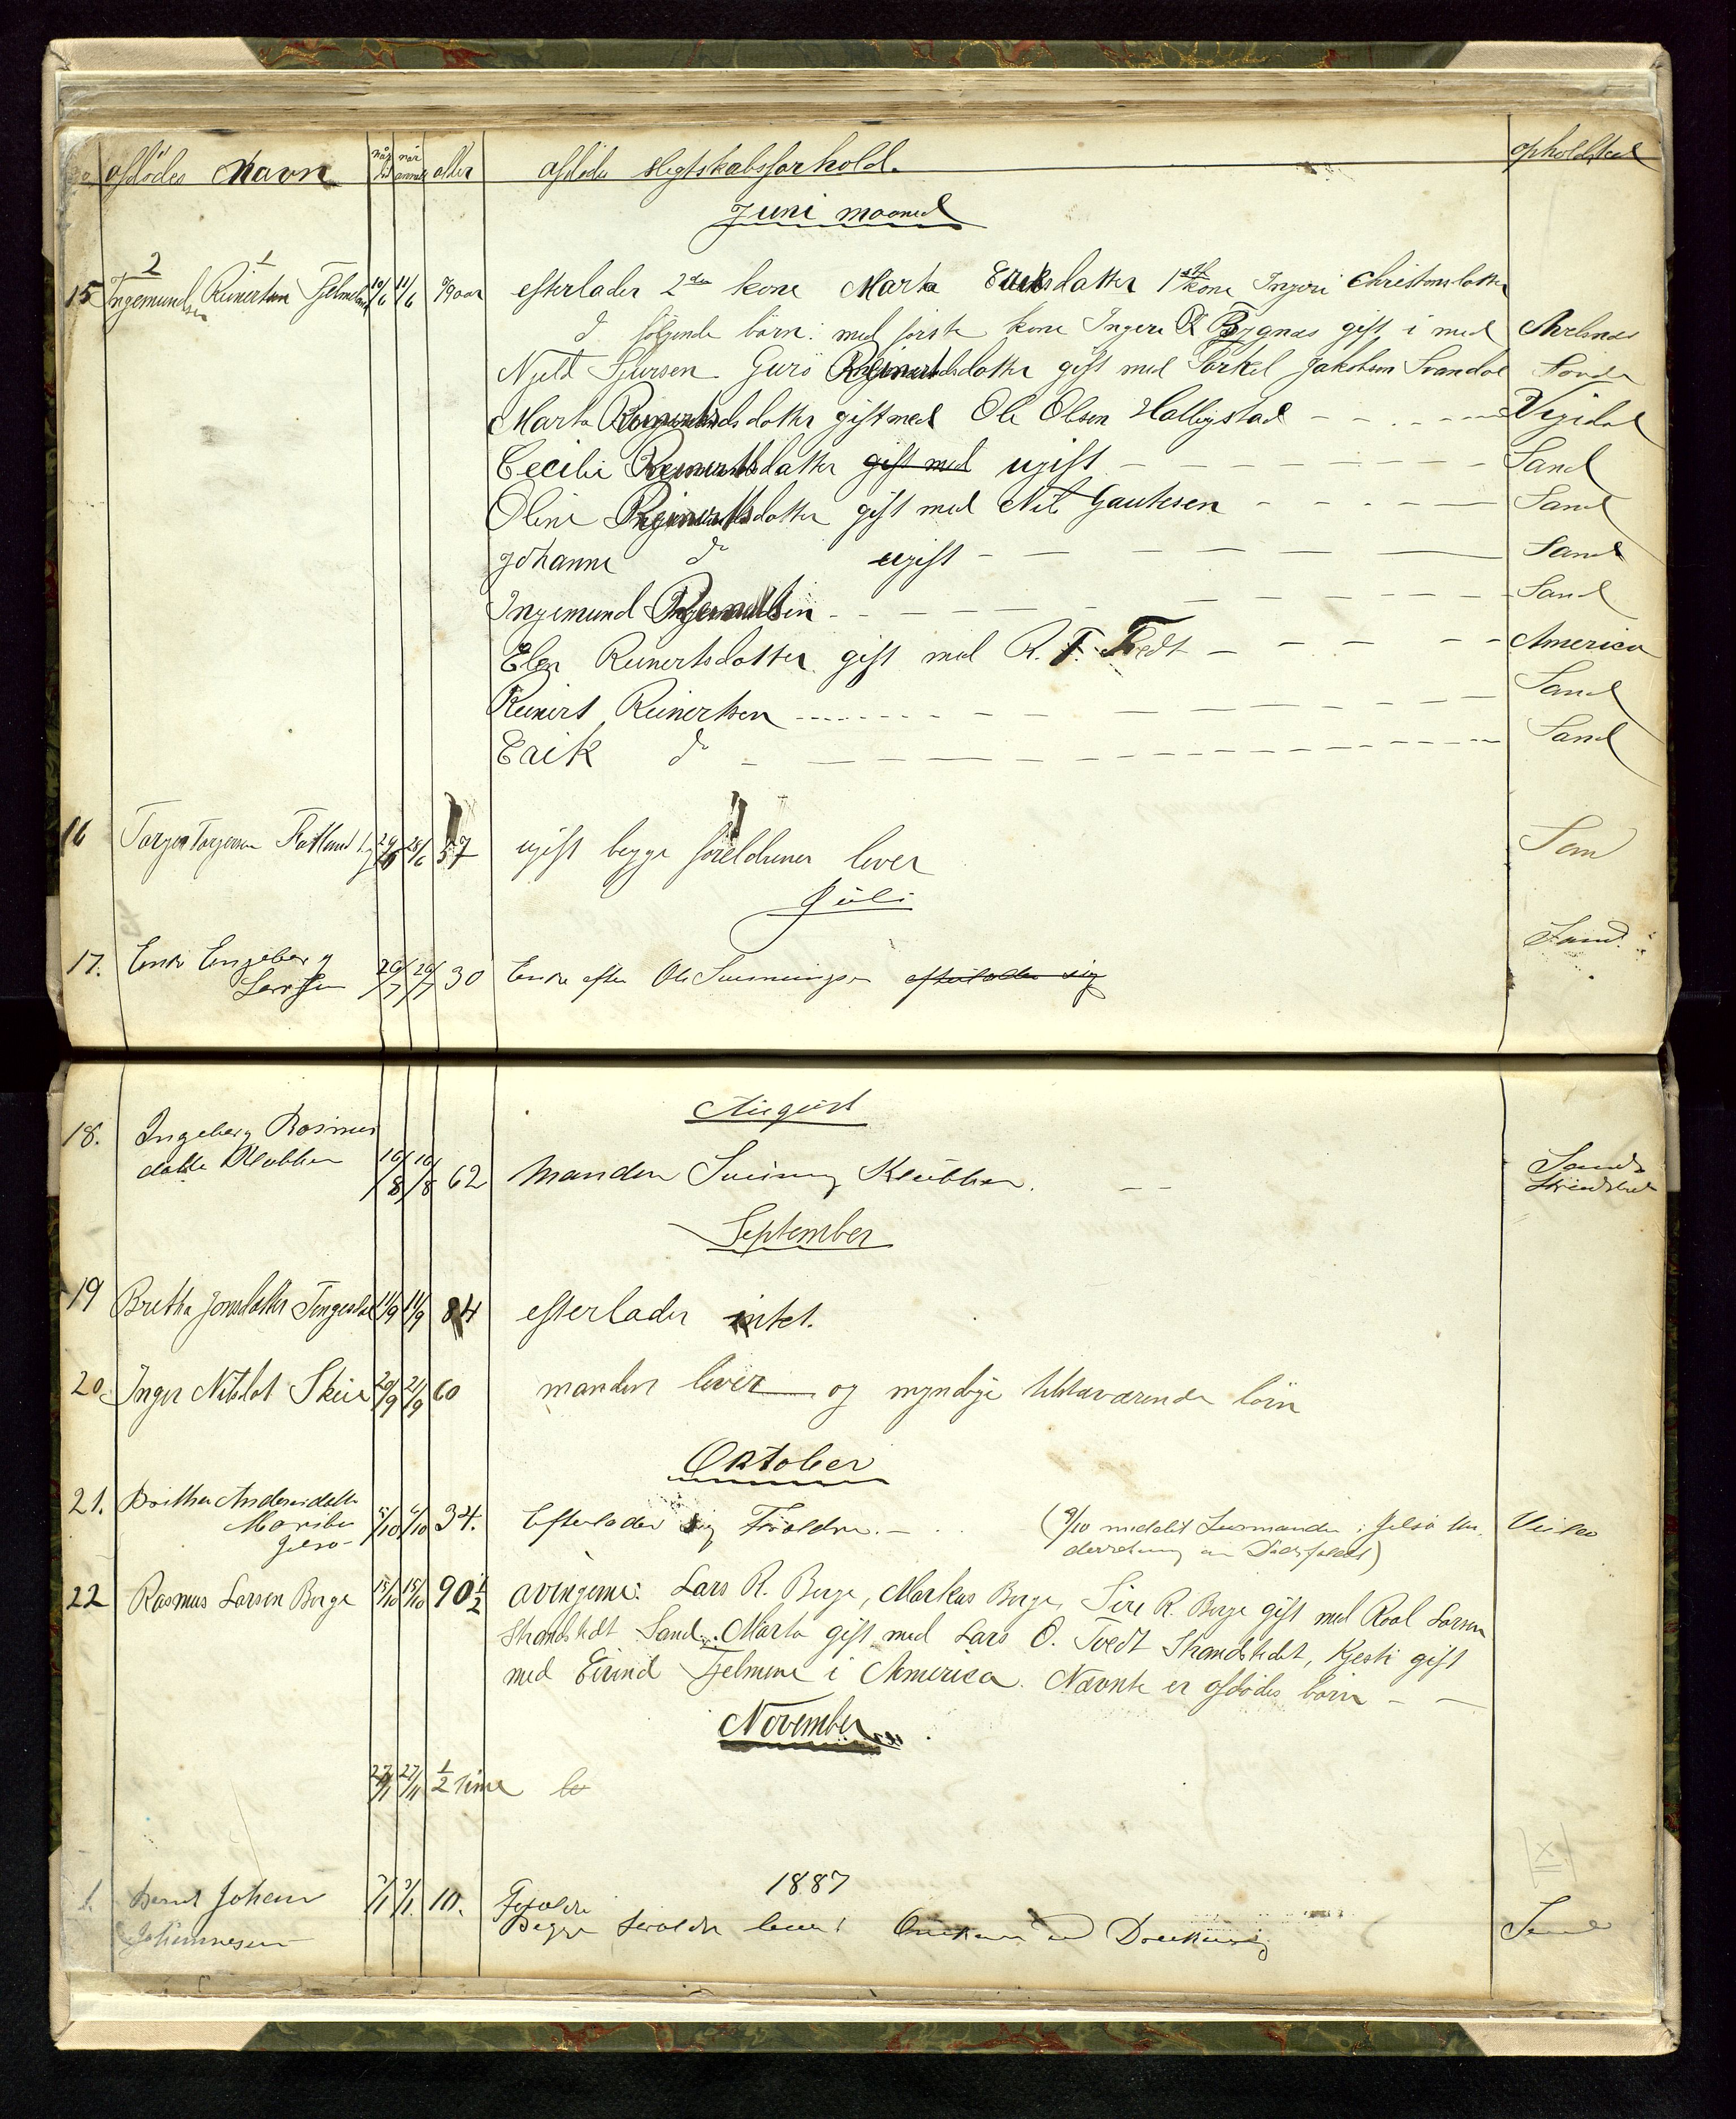 No. afdödes Navn når död når anmelt alder afdödes slegtskabsforhold. opholdsted
Juni maaned
15 2 1 Ingemundsen Reinertsen Fjelmeland 10/6 11/6 79 aar efterlader 2den kone Marta Eriksdatter 1ste kone Ingeri Christensdatter
d. følgende börn: med förste kone Ingeri R Bygnes gift i med
Njeld Sjursen Gurö Reinertsdatter gift med Torkel Jakobsen Svandal
Marta Reinertsdatter gift med Ole Olsen Halleystad
Cecilie Reinertsdatter gift med ugift Sand
Oline Reinertsdatter gift med Nils Gautesen Sand
Johanne do ugift Sand
Ingemund Sand
Elen Reinertsdatter gift med R. T. Tvedt America
Reinert Reinertsen Sand
Erik do Sand
16 Torger Torgersen 28/6 57 ugift begge foreldrene lever
Juli
17. Enke Engeber g
Larsen 20/7 20/7 30 Enke efter Ole efterlader sig Sand.
August
18. Ingeberg Rasmus
datte Klubben 10/8 10/8 62 Manden Klubben. Sands
Strandsted
September
19 Bretha Jonsdatter Tengesdal 11/9 11/9 84 efterlader intet.
20. Inger Nilsdot Skeie 20/9 21/9 60 manden lever og myndige tilstæværende börn
Oktober
21. Britha Andersdatte
Jelsö 5/10 6/10 34. Efterlader sig Foreldre. (9/10 meddelt Lensmanden i Jelsö Un
derretning om Dödsfaldet)
22 Rasmus Larsen Berge 15/10 15/10 90 1/2 arvingerne: Lars R. Berge, Markus Berge, Siri R. Berge gift med Roal Larsen
Strandstedt Sand. Marta gift med Lars O. Tvedt Strandstedet, Kjesti gift
med Eivind Fjelmene i America. Nævnte er afdödes börn
November
27/11 27/11 1/2 time le
1887
1. Bernt Johan
Johannesen 3/1 3/1 10. Foreldre
Begge foreldre lever